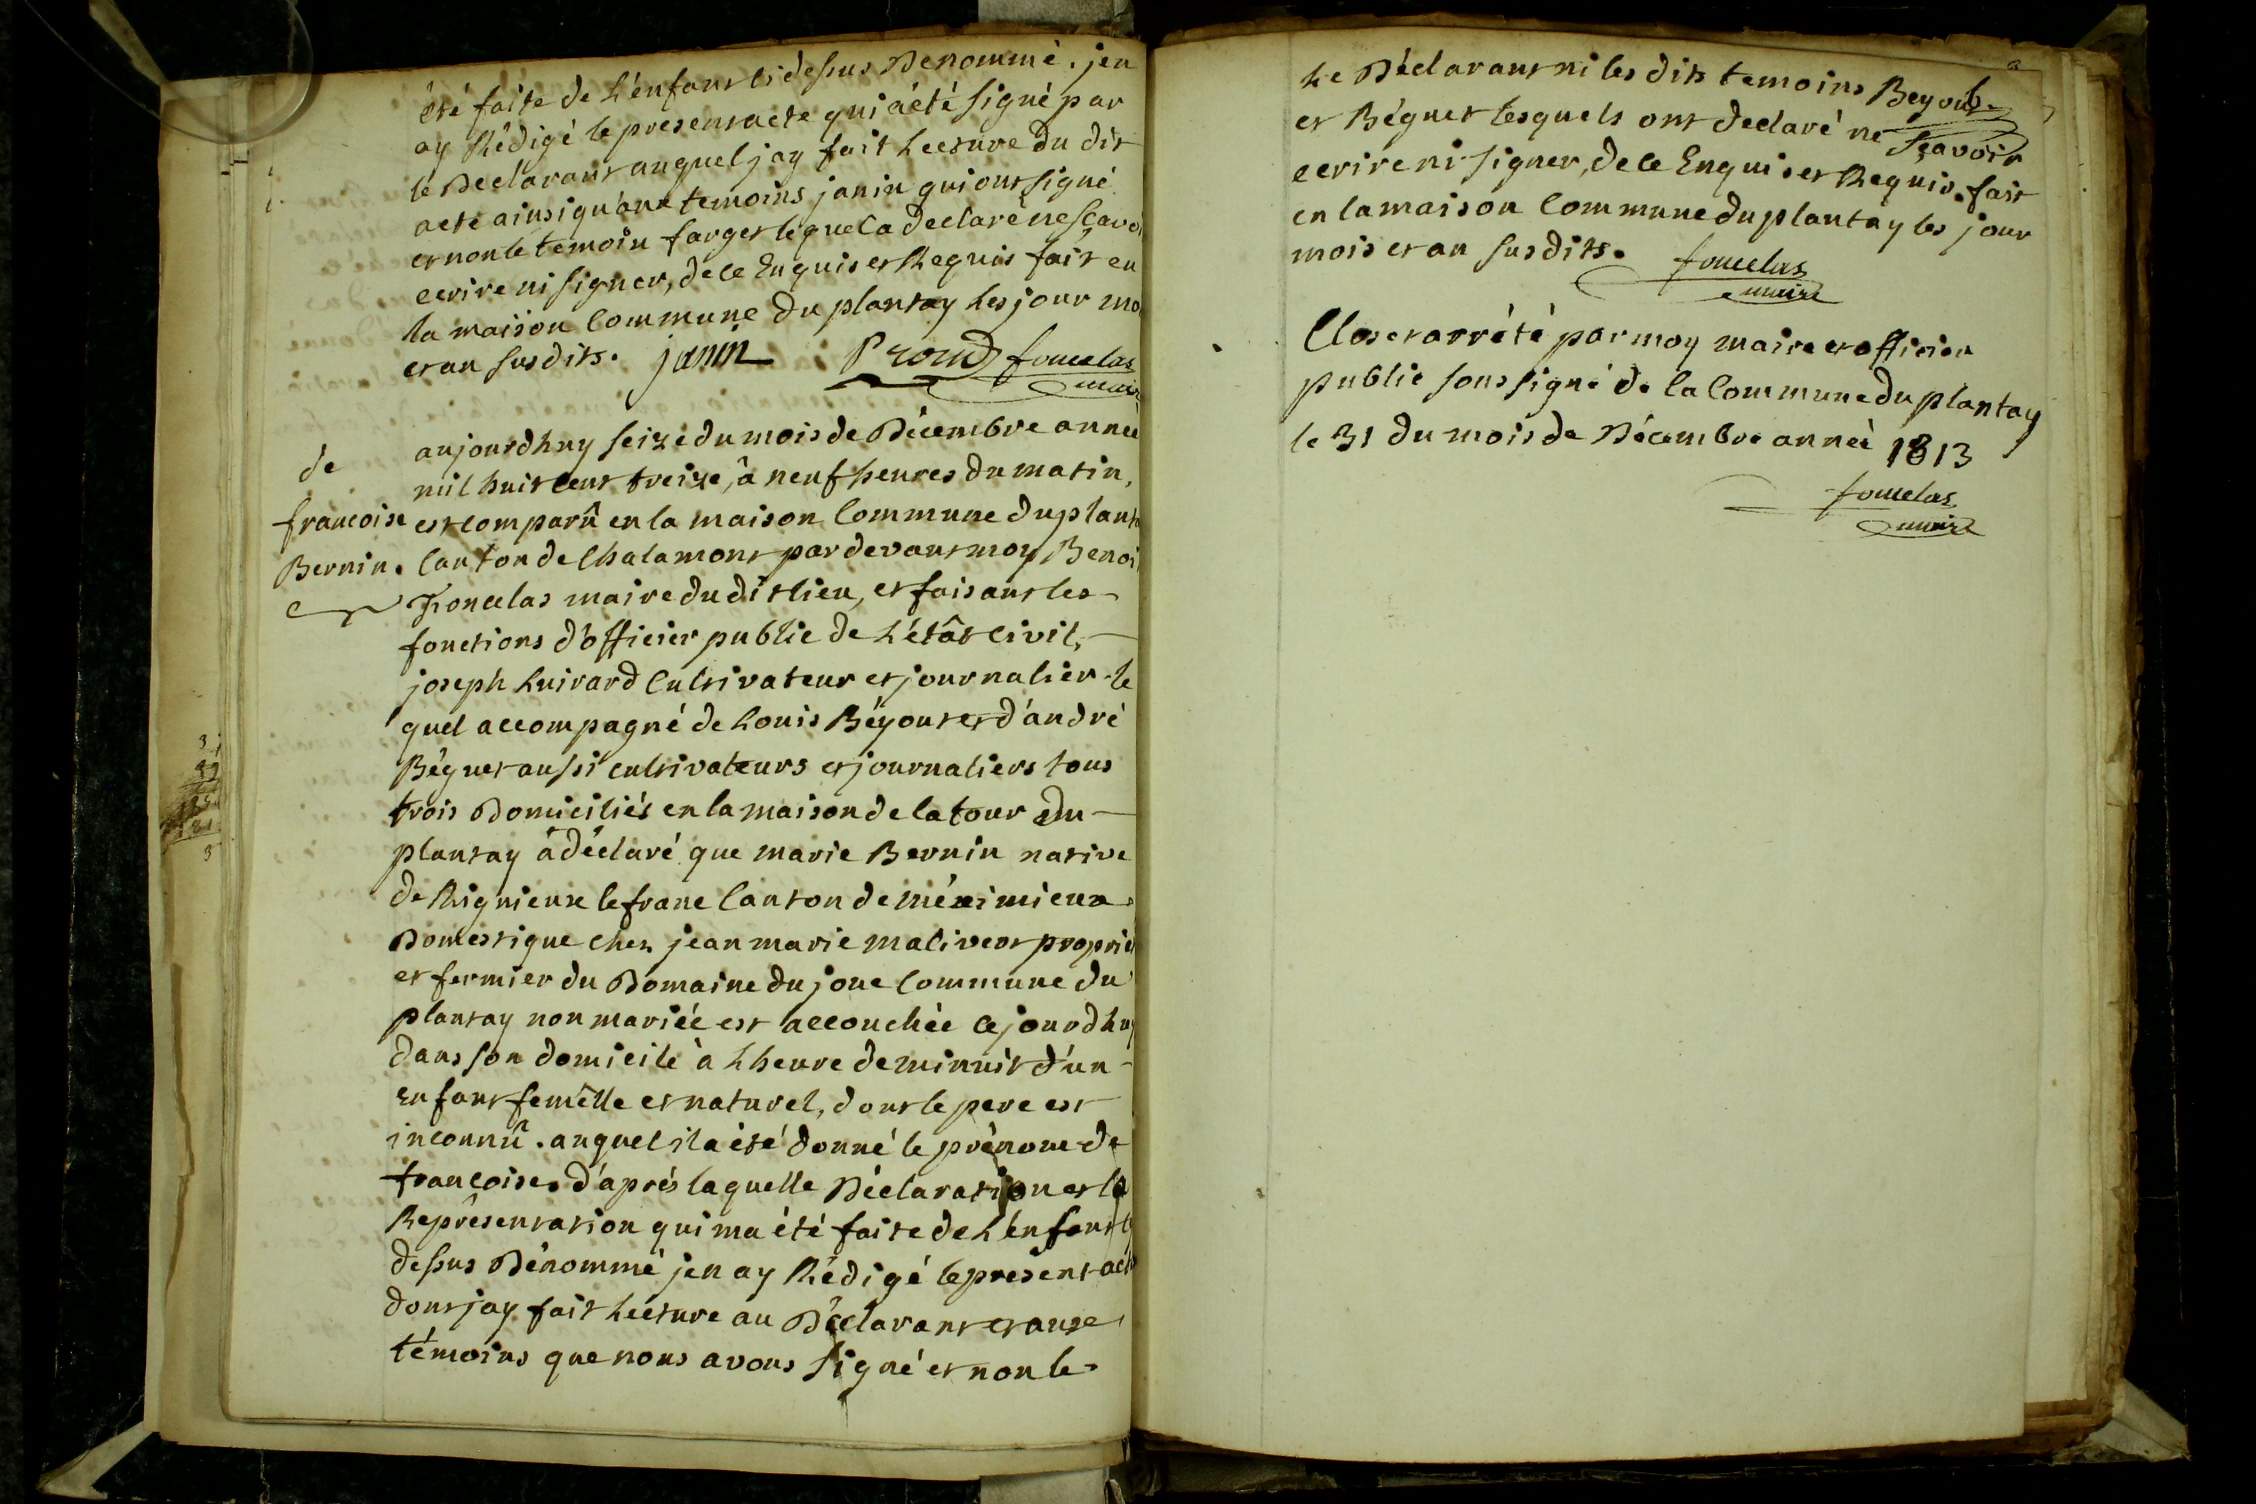 été faite de L'enfant ci dessus Denommé. jen
ay Rédigé le present acte qui a été signé par
le Declarant auquel jay fait Lecture du dit
acte ainsi qu'aux temoins janin qui ont signé
et non le temoin farget lequel a declaré ne scavo
ecrire ni signer, de ce Enquis et Requis fait en
la maison Commune du plantay Les jour mo
et an susdits. janin foncelas
maire
de
francoise
Bernin.
aujourdhuy seize du mois de Décembre année
mil huit cent treize, à neuf heures du matin,
est comparû en la maison Commune du plant
Canton de Chalamont par devant moy Benoi
Foncelas maire du dit lieu, et faisant les
fonctions d'officier public de L'état Civil,
joseph Luirard Cultivateur et journalier le
quel accompagné de Louis Béyout et d'andré
Béguet aussi cultivateurs et journaliers tous
trois Domiciliés en la maison de la tour du
plantay à déclaré que marie Bernin native
de Rignieux le franc Canton de méximieux
Domestique chez jean marie maliveot proprié
et fermier du Domaine du joue Commune du
plantay non mariée est accouchée ce jourdhuy
dans son domicile à Lheure de minuit d'un
Enfant femêlle et naturel, dont le pere est
inconnû. auquel il a été donné le prénom de
francoise. d'aprés laquelle Déclaration et la
Représentation qui ma été faite de L'enfant cy
dessus Dénommé jen ay Rédigé le present acte
dont jay fait Lecture au Déclarant et aux
témoins que nous avons signé et non le
Le Déclarant ni les dits temoins Beyout
et Béguet lesquels ont declaré ne sçavoir
ecrire ni signer, de ce Enquis et Requis. fait
en la maison Commune du plantay les jour
mois et an susdits. foncelas
maire
Clos et arrété par moy maire et officier
public soussigné de la Commune du plantay
le 31 du mois de Décembre année 1813
foncelas
maire